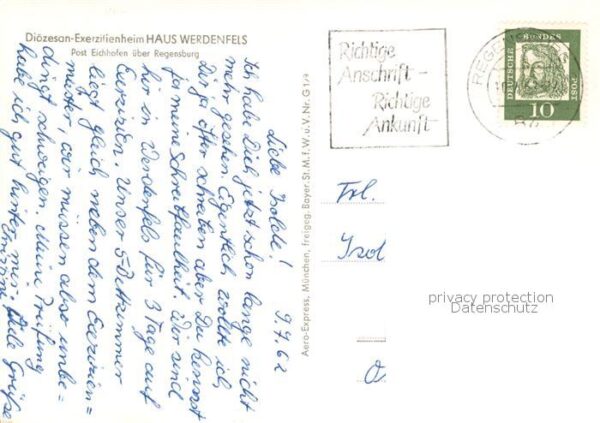 Diözesan-Exerzitienheim HAUS WERDENFELS
Post Eichhofen über Regensburg
9.7.62
Liebe Isolde!
Ich habe Dich jetzt schon lange nicht
mehr gesehen. Eigentlich wollte ich
Dir ja öfter schreiben aber Du kennst
ja meine Schreibfaulheit. Wir sind
hier in Werdenfels für 3 Tage auf
Exerzitien. Unser 5-Bettzimmer
liegt gleich neben dem Exerzitien=
meister, wir müssen also unbe=
dingt schweigen. Meine Prüfung
habe ich gut hinter mir. Viele Grüße
Christine
Aero-Express, München, Freigeg. Bayer. St. M. f. W. u. V. Nr. G 1/9
Richtige
Anschrift -
Richtige
Ankunft
DEUTSCHE
BUNDES
POST
10
Frl.
Isol
privacy protection
Datenschutz